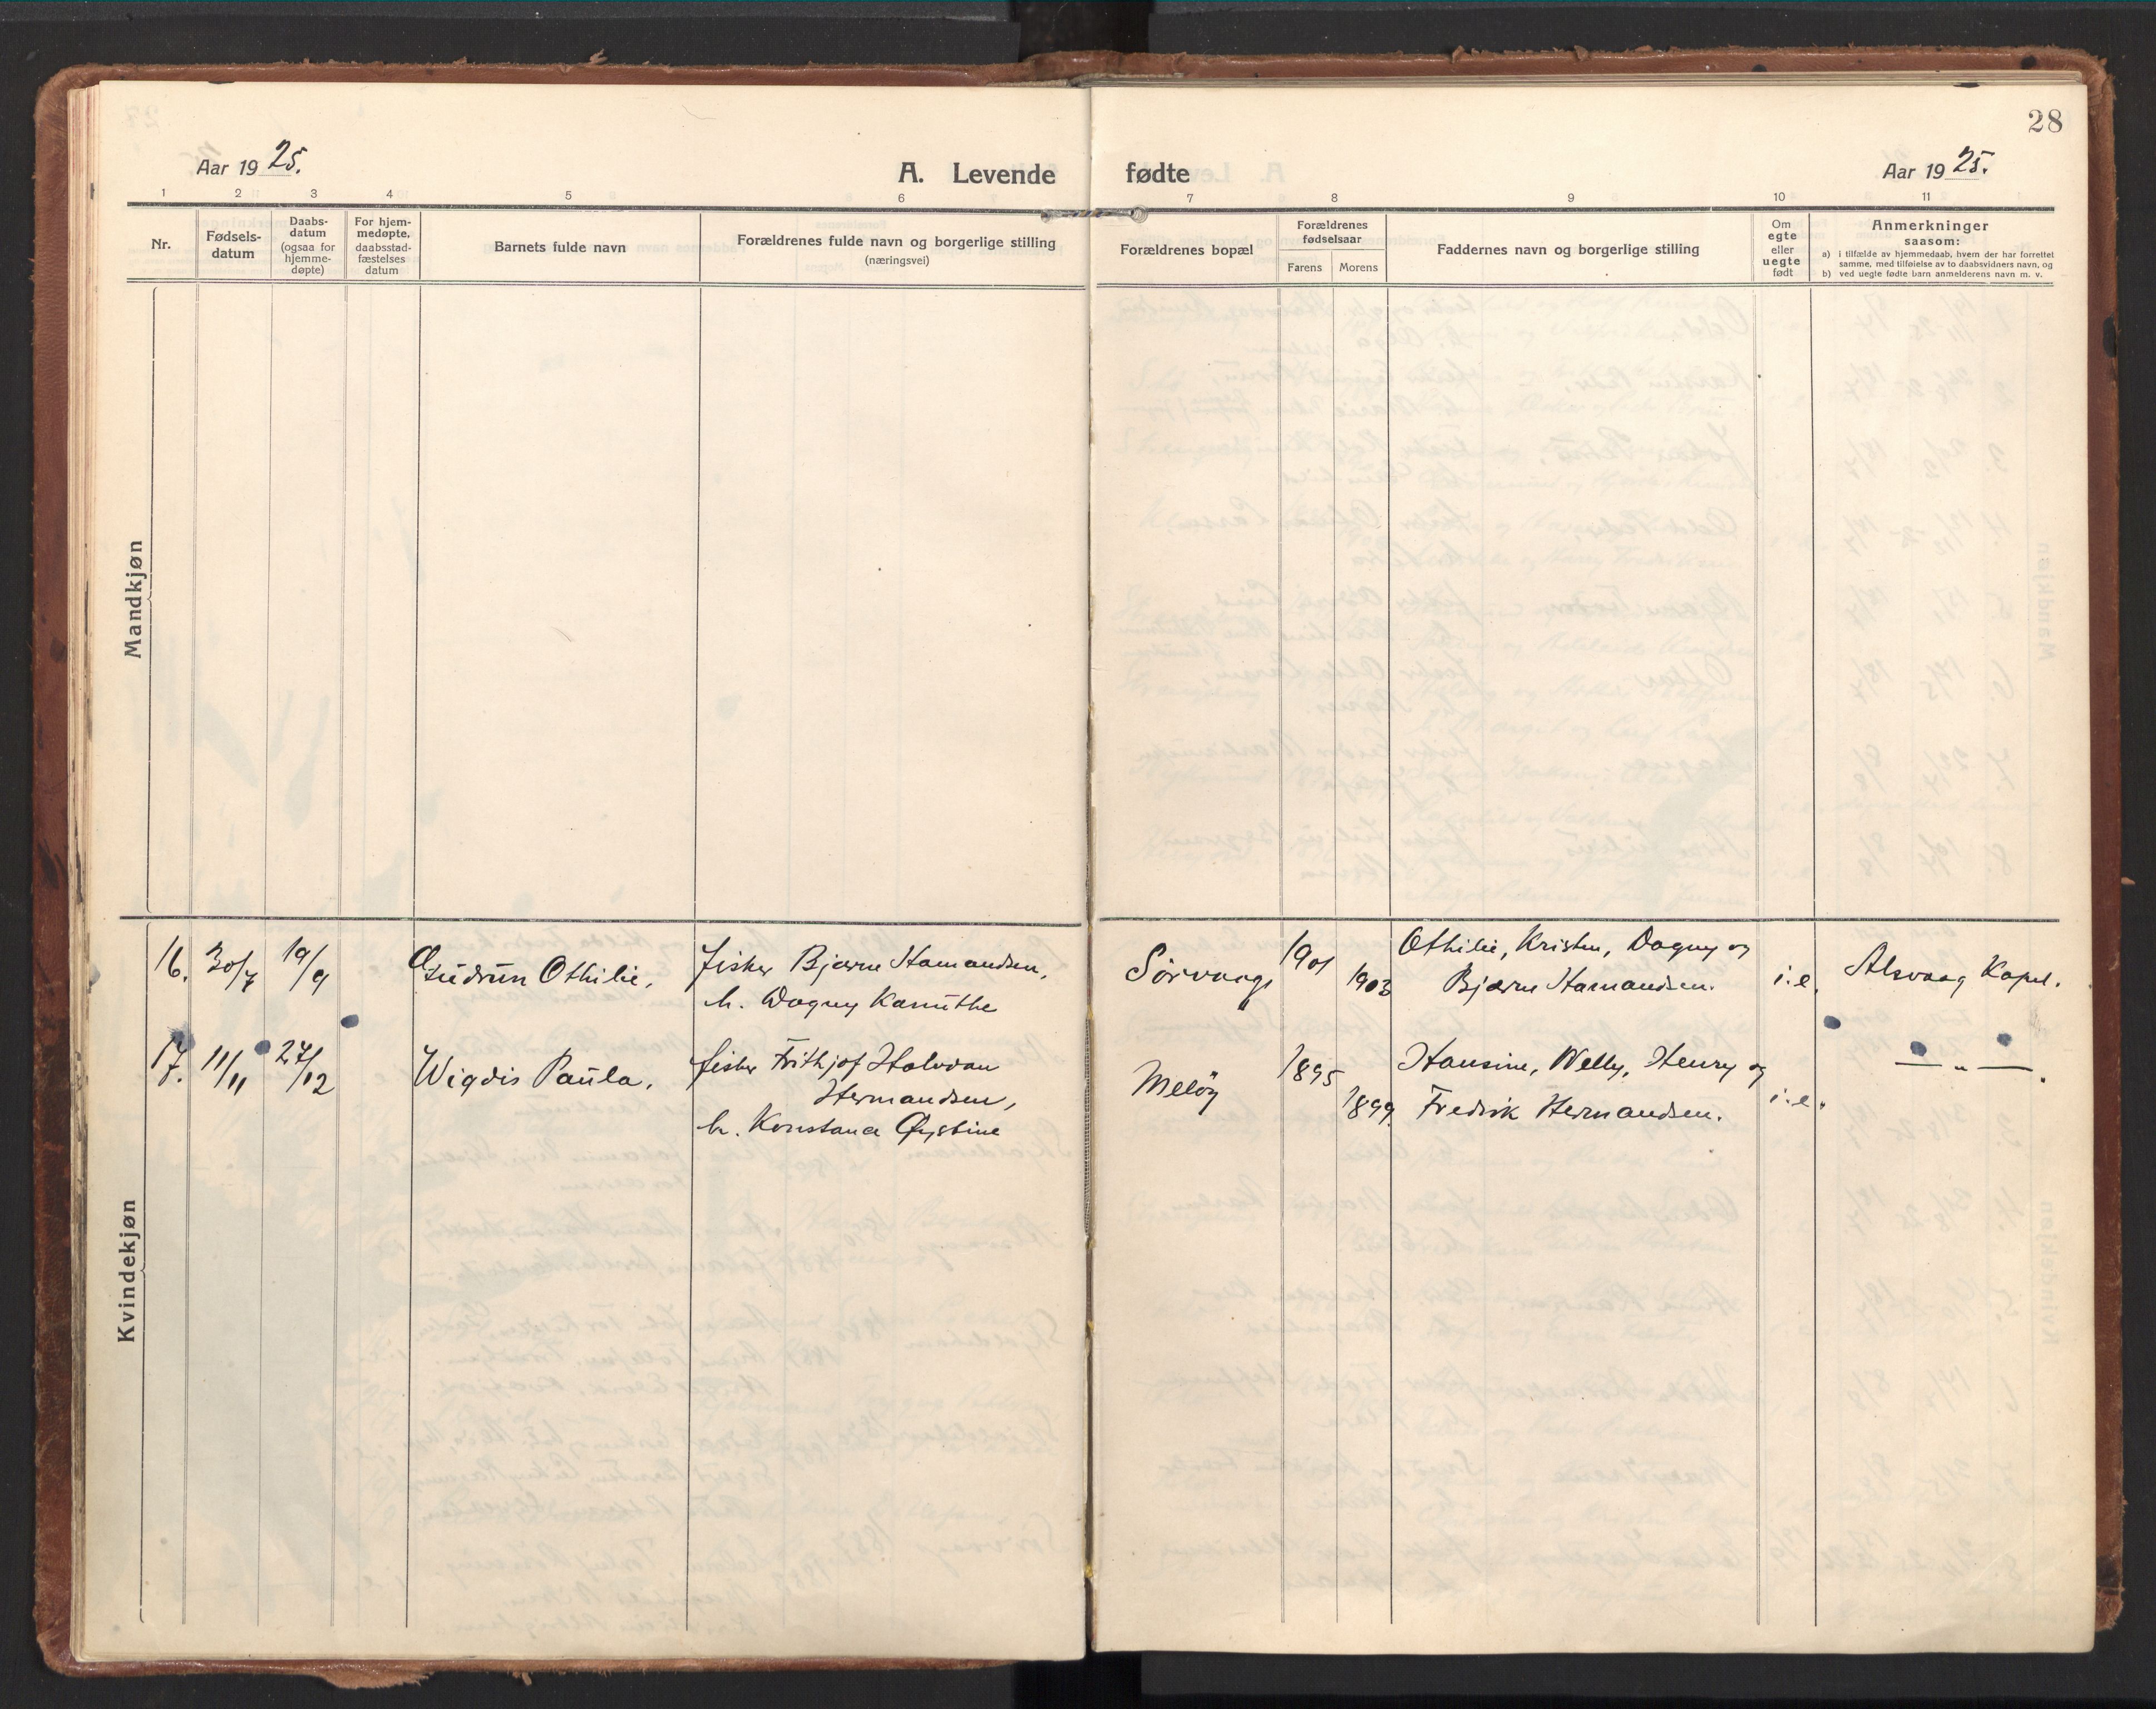 28
Aar 1925.
A. Levende fødte
Aar 1925.
1 2 3 4 5 6 7 8 9 10 11
Nr.
Fødsels-
datum
Daabs-
datum
(ogsaa for
hjemme-
døpte)
For hjem-
medøpte,
daabsstad-
fæstelses
datum
Barnets fulde navn
Forældrenes fulde navn og borgerlige stilling
(næringsvei)
Forældrenes bopæl
Forældrenes
fødselsaar
Farens Morens
Faddernes navn og borgerlige stilling
Om
egte
eller
uegte
født
Anmerkninger
saasom:
a) i tilfælde av hjemmedaab, hvem der har forrettet
samme, med tilføielse av to daabsvidners navn, og
b) ved uegte fødte barn anmelderens navn m. v.
Mandkjøn
Kvindekjøn
16. 30/7 19/9 Gudrun Othilie, fisker Bjarne Hamandsen, Sörvaag 1901 Othilie, Kristen, Dagny og
h. Dagny Kanuthe 1903 Bjarne Hamandsen. i.e. Alsvaag Kapel.
17. 11/11 27/12 Wigdis Paula, fisker Frithjof Halvdan Melöy 1895 Hansine, Welly, Henry og — „ — .
Hermandsen, 1899. Fredrik Hermandsen. i.e.
h. Konstance Øystine